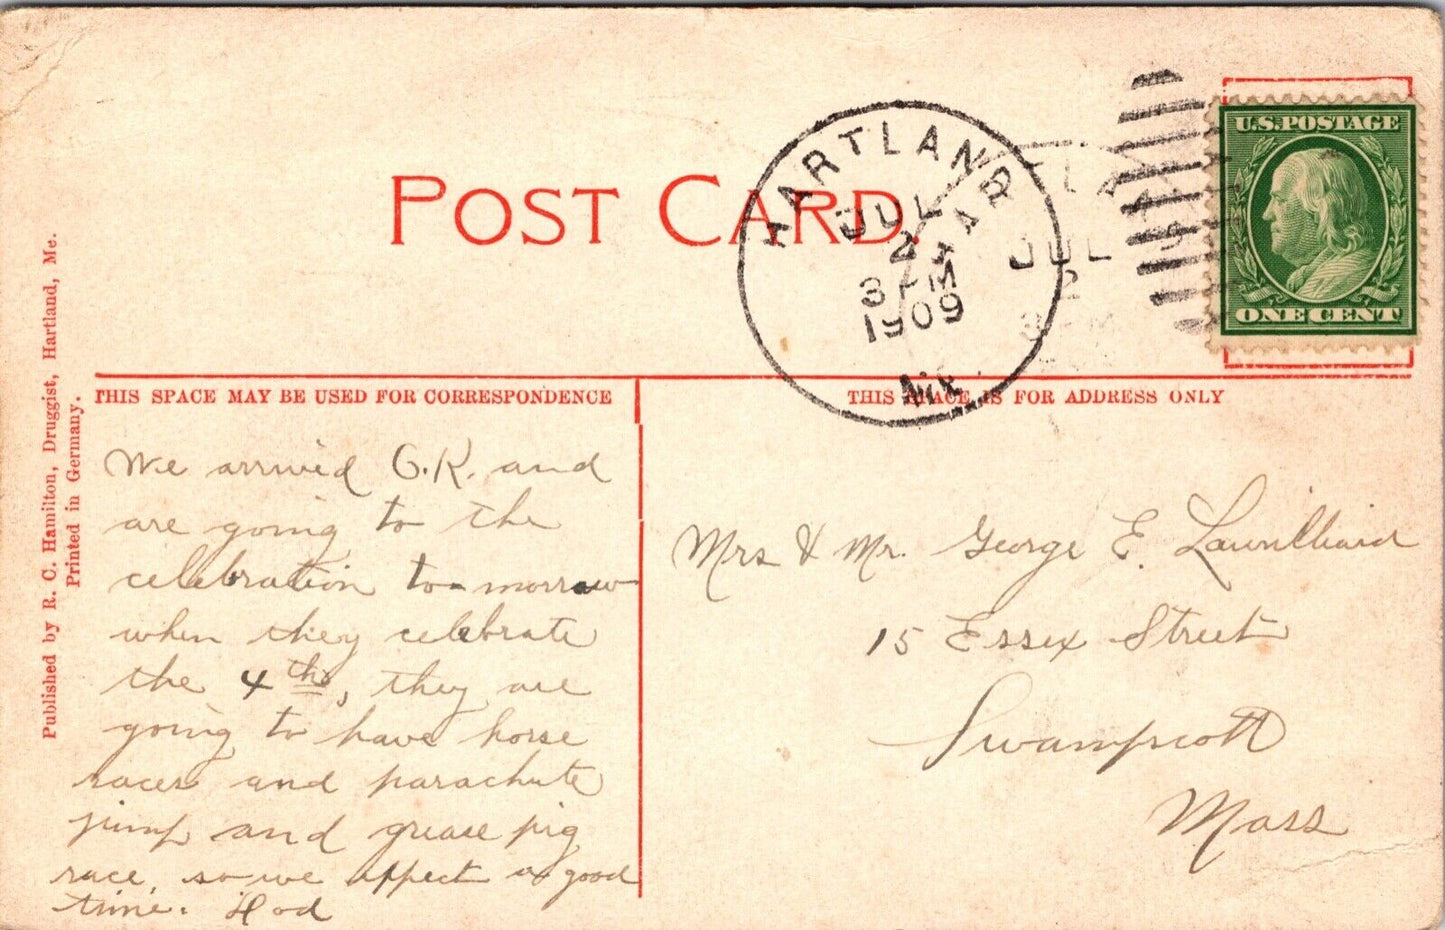 POST CARD.
HARTLAND
JUL
2
3 PM
1909
ME.
HAR
JUL
2
U.S. POSTAGE
ONE CENT
Published by R. C. Hamilton, Druggist, Hartland, Me.
Printed in Germany.
THIS SPACE MAY BE USED FOR CORRESPONDENCE
THIS SPACE IS FOR ADDRESS ONLY
We arrived O.K. and
are going to the
celebration to-morrow
when they celebrate
the 4th, they are
going to have horse
races and parachute
jump and grease pig
race, so we expect a good
time. Hod
Mrs & Mr. George E.
15 Essex Street
Swampscott
Mass